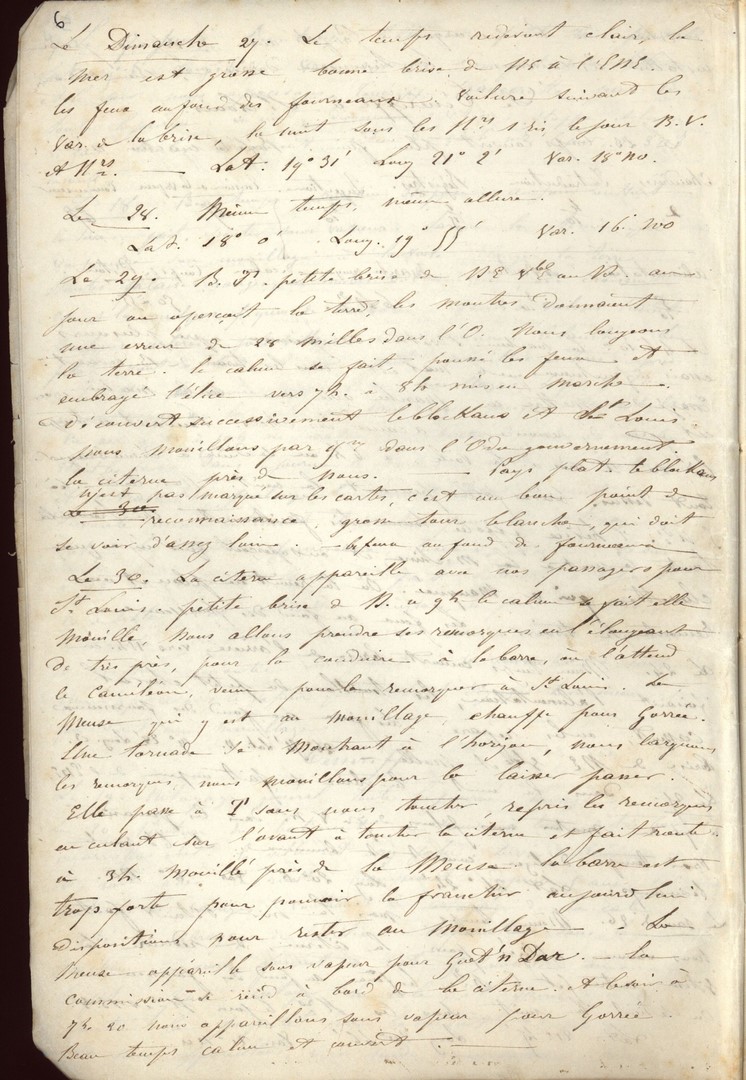 6
Le Dimanche 27. Le temps redevient clair, la
mer est grosse bonne brise de NE à l'ENE.
les feux au fond des fourneaux. Voilure suivant les
Var. de la brise, la nuit sous les H^rs 1 ris, le jour B.V.
et H^rs. — Lat. 19° 31' Long 21° 2' Var. 18° NO.
Le 28. Même temps, même allure.
Lat. 18° 0' Long. 19° 55' Var. 16° NO
Le 29. B. T^s. petite brise de NE V^ble au N. au
jour on aperçoit la terre, les montres donnaient
une erreur de 28 milles dans l'O. Nous longeons
la terre. le calme se fait, poussé les feux et
embrayé l'hélice vers 7h. à 8h mis en marche.
découvert successivement le blockaus et St Louis
nous mouillons par dans l'O du gouvernement.
la citerne près de nous. — Pays plat. le blockaus
n'est pas marqué sur les cartes, c'est un bon point de
Le 30 reconnaissance, grosse tour blanche, qui doit
se voir d'assez loin. — les feux au fond de fourneaux
Le 30. La citerne appareille avec nos passagers pour
St Louis. petite brise de N. à 9h le calme se fait elle
mouille, Nous allons prendre ses remorques en l'élongeant
de très près, pour la conduire à la barre, où l'attend
le Caméléon, venu pour la remorquer à St Louis. La
Meuse qui y est au mouillage, chauffe pour Gorrée.
Une tornade se montrant à l'horizon, nous larguons
les remorques nous mouillons pour la laisser passer.
Elle passe à T^e sans nous toucher, repris les remorques
en culant sur l'avant à toucher la citerne et fait route.
à 3h. Mouillé près de la Meuse la barre est
trop forte pour pouvoir la franchir aujourd'hui
Dispositions pour rester au mouillage. La
Meuse appareille sous vapeur pour Guet'n Dar. — la
commission se rend à bord de la citerne. et le soir à
7h. 20 nous appareillons sous vapeur pour Gorrée.
Beau temps calme et couvert. —